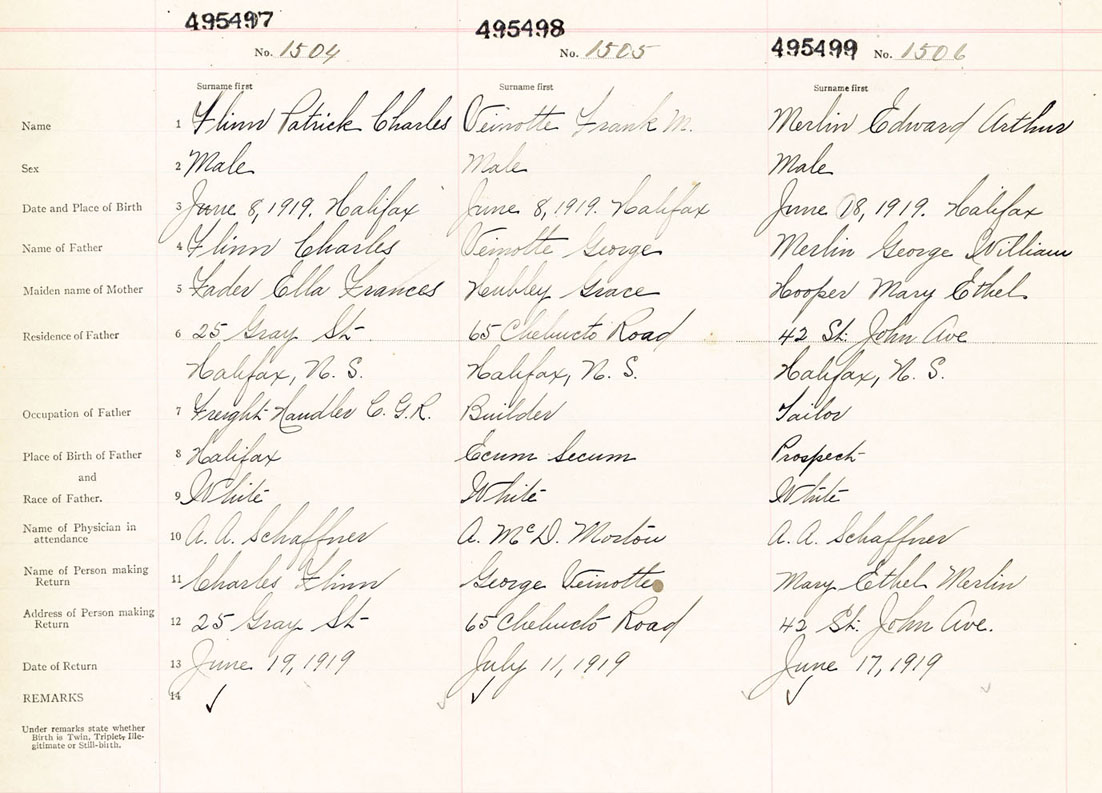 495497 495498 495499
No. 1504 No. 1505 No. 1506
Surname first Surname first Surname first
Name 1 Flinn Patrick Charles Veinotte Frank M. Merlin Edward Arthur
Sex 2 Male Male Male
Date and Place of Birth 3 June 8, 1919. Halifax June 8, 1919. Halifax June 18, 1919. Halifax
Name of Father 4 Flinn Charles Veinotte George Merlin George William
Maiden name of Mother 5 Fader Ella Frances Hubley Grace Hooper Mary Ethel
Residence of Father 6 25 Gray St. 65 Chebucto Road 42 St. John Ave
Halifax, N. S. Halifax, N. S. Halifax, N. S.
Occupation of Father 7 Freight Handler C. G. R. Builder Tailor
Place of Birth of Father 8 Halifax Ecum Secum Prospect
and
Race of Father. 9 White White White
Name of Physician in
attendance 10 A. A. Schaffner A. McD. Morton A. A. Schaffner
Name of Person making
Return 11 Charles Flinn George Veinotte Mary Ethel Merlin
Address of Person making
Return 12 25 Gray St 65 Chebucto Road 42 St. John Ave.
Date of Return 13 June 19, 1919 July 11, 1919 June 17, 1919
REMARKS 14
Under remarks state whether
Birth is Twin, Triplet, Ille-
gitimate or Still-birth.